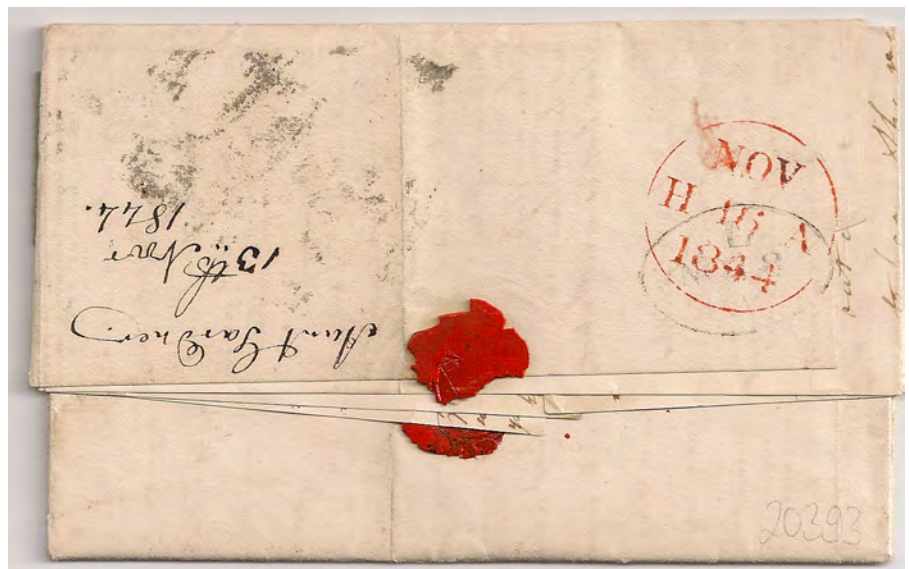 Aunt Gardner
13th Novr
1844.
NOV
H 16 A
1844
20393